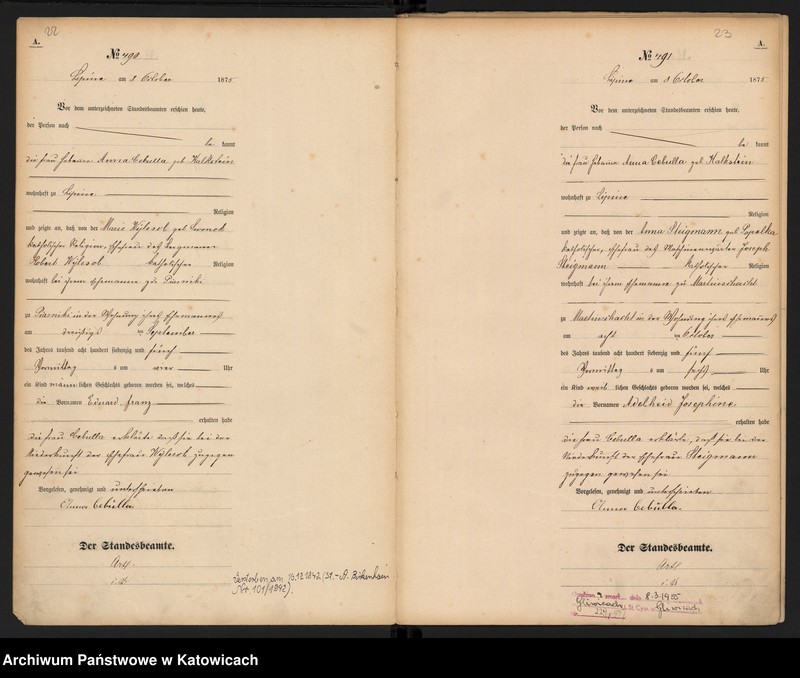 22
A.
№ 490
Lipine am 8 October 1875
Vor dem unterzeichneten Standesbeamten erschien heute,
der Person nach
be kannt
die Frau Hebamme Anna Cebulla geb Kalkstein
wohnhaft zu Lipine
Religion
und zeigte an, daß von der Marie Wylesol geb
katholischer Religion, Ehefrau des Bergmann
Robert Wylesol katholischer Religion
wohnhaft bei ihrem Ehemanne zu Piasniki
zu Piasniki in der Wohnung ihres Ehemannes
am dreißigst en September
des Jahres tausend acht hundert siebenzig und fünf
Vormittag s um vier Uhr
ein Kind männ lichen Geschlechts geboren worden sei, welches
die Vornamen Eduard Franz
erhalten habe
die Frau Cebulla erklärte daß sie bei der
Niederkunft der Ehefrau Wylesol zugegen
gewesen sei
Vorgelesen, genehmigt und unterschrieben
Anna Cebulla
Der Standesbeamte.
i. V.
Verstorben am 16.12.1942 (St.-A. Birkenhain
Nr. 101/1942).
23
A.
№ 491
Lipine am 8 October 1875
Vor dem unterzeichneten Standesbeamten erschien heute,
der Person nach
be kannt
die Frau Hebamme Anna Cebulla geb Kalkstein
wohnhaft zu Lipine
Religion
und zeigte an, daß von der Anna Steigmann geb
katholischer, Ehefrau des Maschinenwärter Joseph
Steigmann katholischer Religion
wohnhaft bei ihrem Ehemanne zu Martinschacht
zu Martinschacht in der Wohnung ihres Ehemannes
am acht en October
des Jahres tausend acht hundert siebenzig und fünf
Vormittag s um sechs Uhr
ein Kind weib lichen Geschlechts geboren worden sei, welches
die Vornamen Adelheid Josephine
erhalten habe
die Frau Cebulla erklärte, daß sie bei der
Niederkunft der Ehefrau Steigmann
zugegen gewesen sei
Vorgelesen, genehmigt und unterschrieben
Anna Cebulla.
Der Standesbeamte.
i. V.
zmarł dnia 8.3.1955
Gliwicach U.St.Cyw. Gliwicach
Archiwum Państwowe w Katowicach